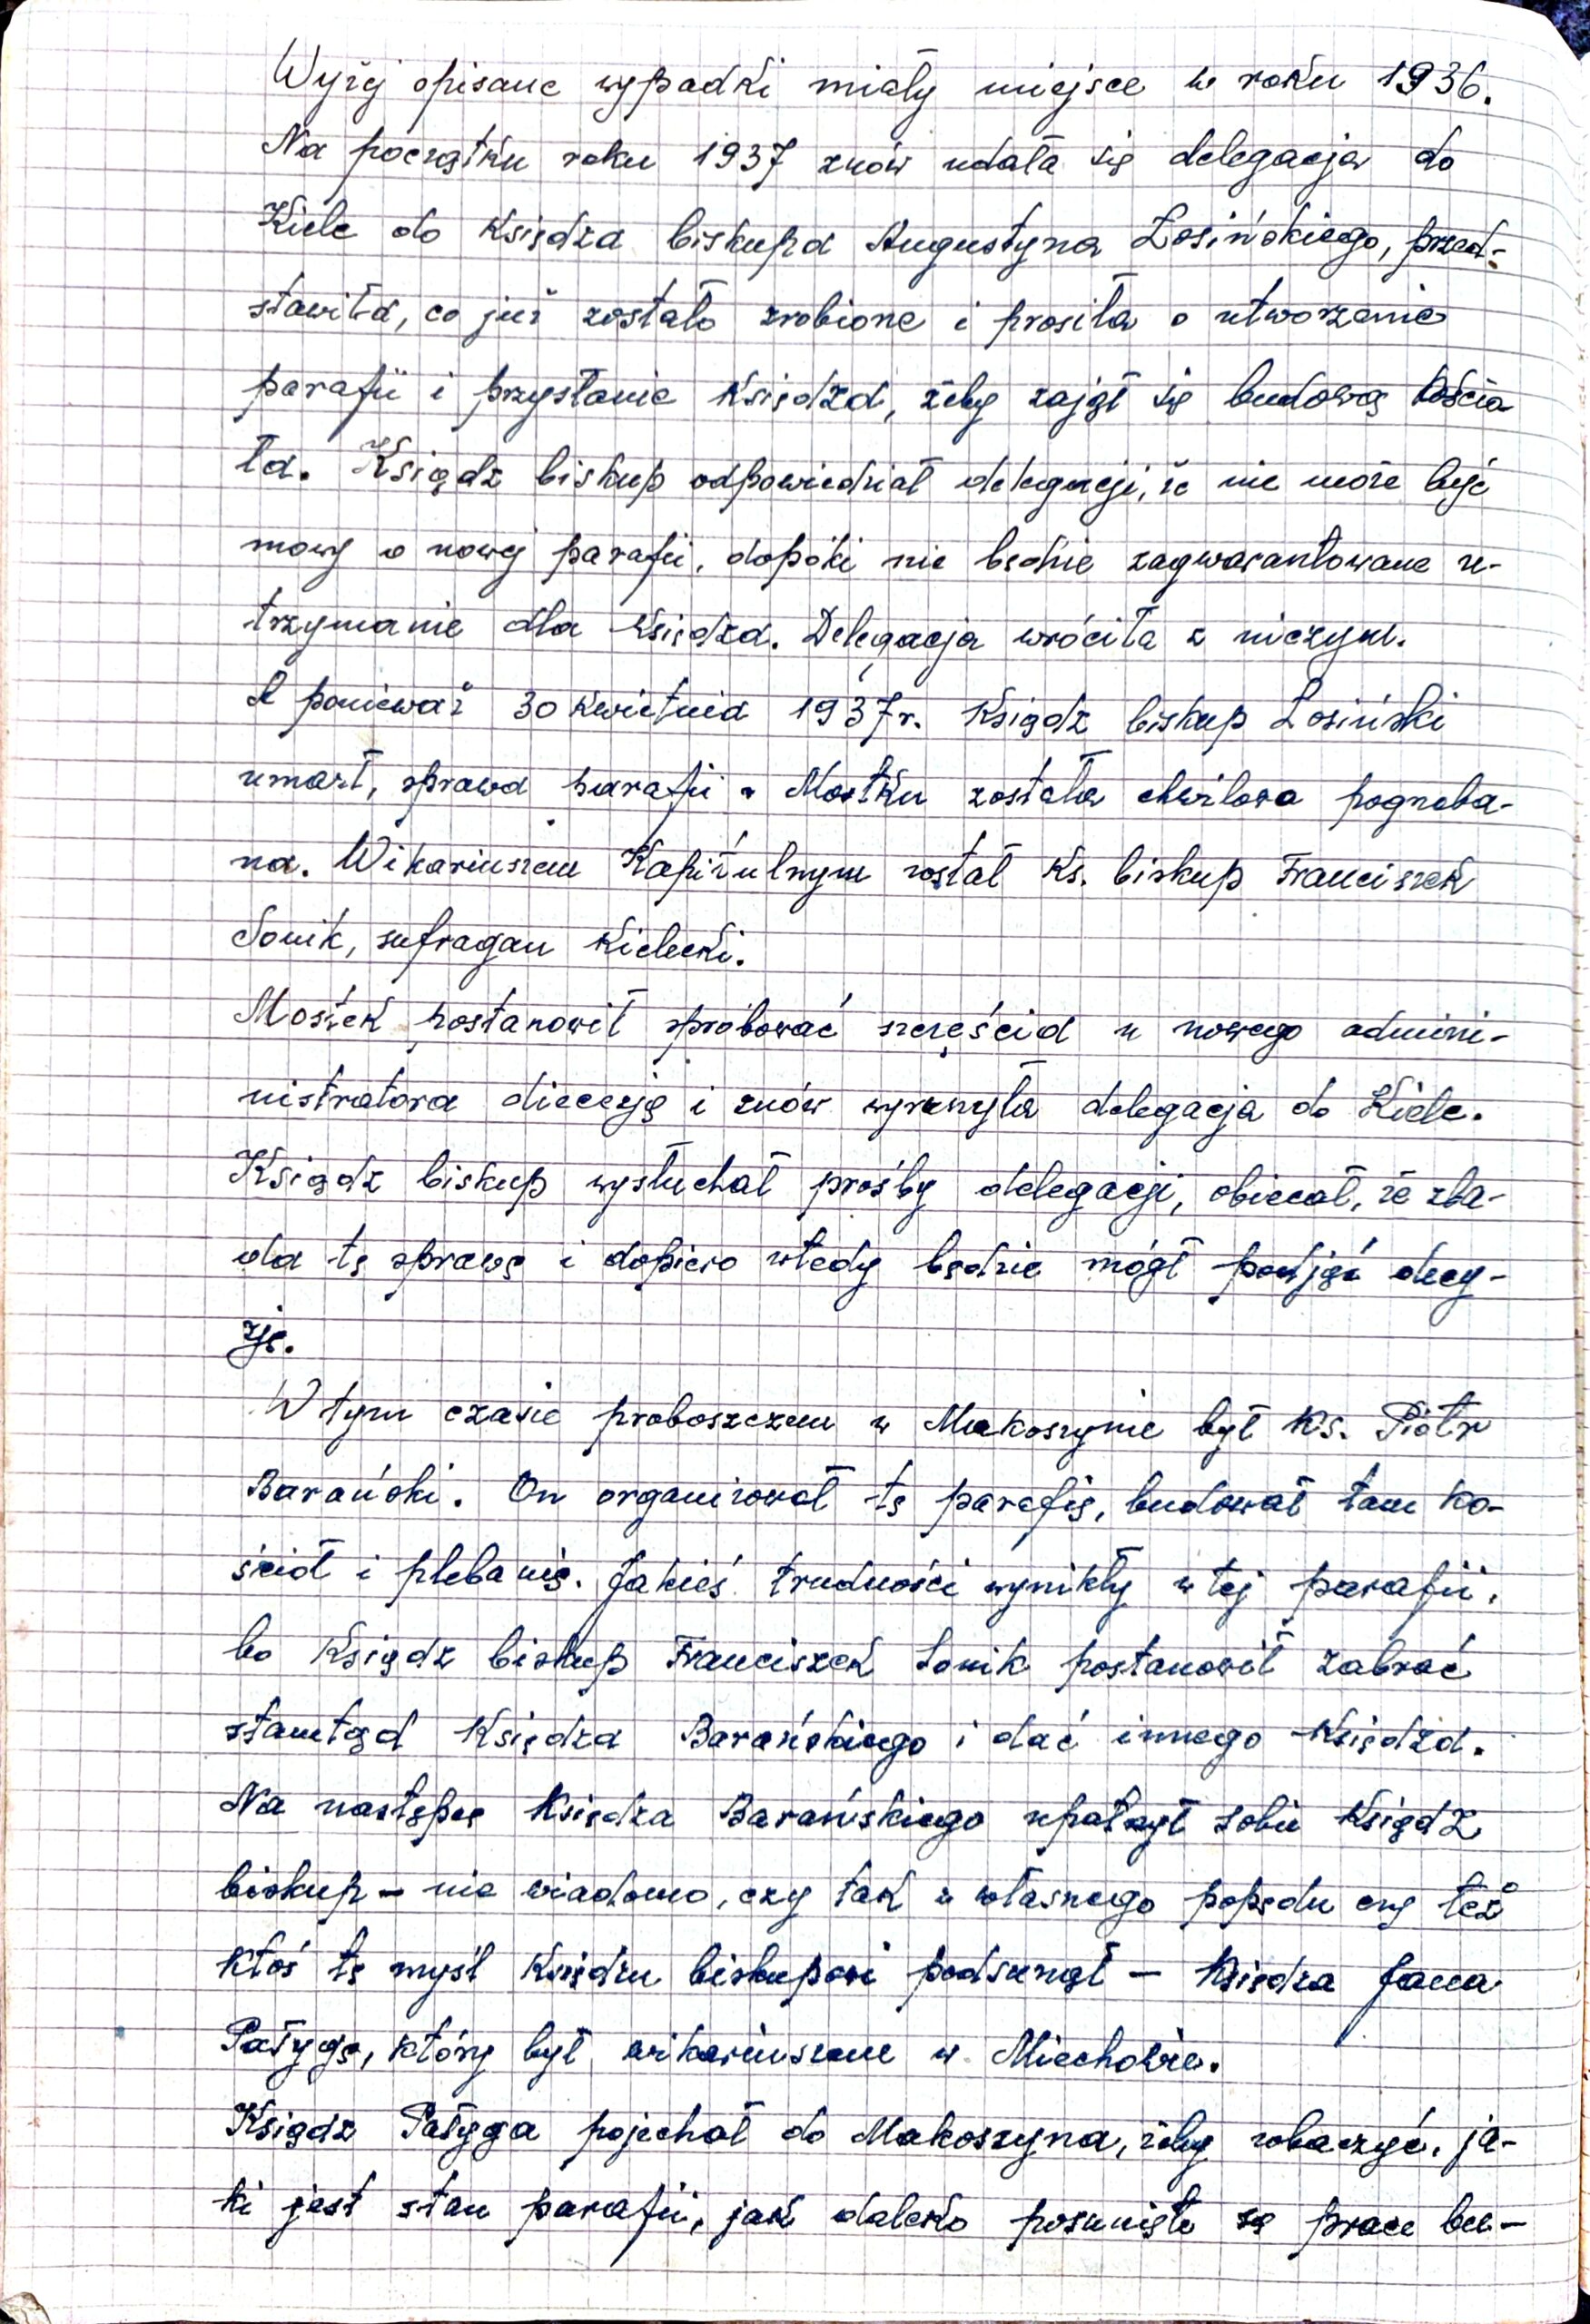 Wyżej opisane wypadki miały miejsce w roku 1936.
Na początku roku 1937 znów udała się delegacja do
Kielc do Księdza biskupa Augustyna Łosińskiego, przed-
stawiła, co już zostało zrobione i prosiła o utworzenie
parafii i przysłanie Księdza, żeby zajął się budową kościo
ła. Ksiądz biskup odpowiedział delegacji, że nie może być
mowy o nowej parafii, dopóki nie będzie zagwarantowane u-
trzymanie dla Księdza. Delegacja wróciła z niczym.
A ponieważ 30 kwietnia 1937 r. Ksiądz biskup Łosiński
umarł, sprawa parafii w Mostku została chwilowo pogrzeba-
na. Wikariuszem Kapitulnym został Ks. biskup Franciszek
Sonik, sufragan Kielecki.
Mostek postanowił spróbować szczęścia u nowego admini-
nistratora diecezji i znów wyruszyła delegacja do Kielc.
Ksiądz biskup wysłuchał prośby delegacji, obiecał, że zba-
da tę sprawę i dopiero wtedy będzie mógł podjąć decy-
zję.
W tym czasie proboszczem w Makoszynie był Ks. Piotr
Barański. On organizował tę parafię, budował tam ko-
ściół i plebanię. Jakieś trudności wynikły w tej parafii,
bo Ksiądz biskup Franciszek Sonik postanowił zabrać
stamtąd Księdza Barańskiego i dać innego Księdza.
Na następcę Księdza Barańskiego upatrzył sobie Ksiądz
biskup – nie wiadomo, czy tak z własnego popędu czy też
ktoś tę myśl Księdzu biskupowi podsunął – Księdza Jana
Pałygę, który był wikariuszem w Miechowie.
Ksiądz Pałyga pojechał do Makoszyna, żeby zobaczyć, ja-
ki jest stan parafii, jak daleko posunięte są prace bu-